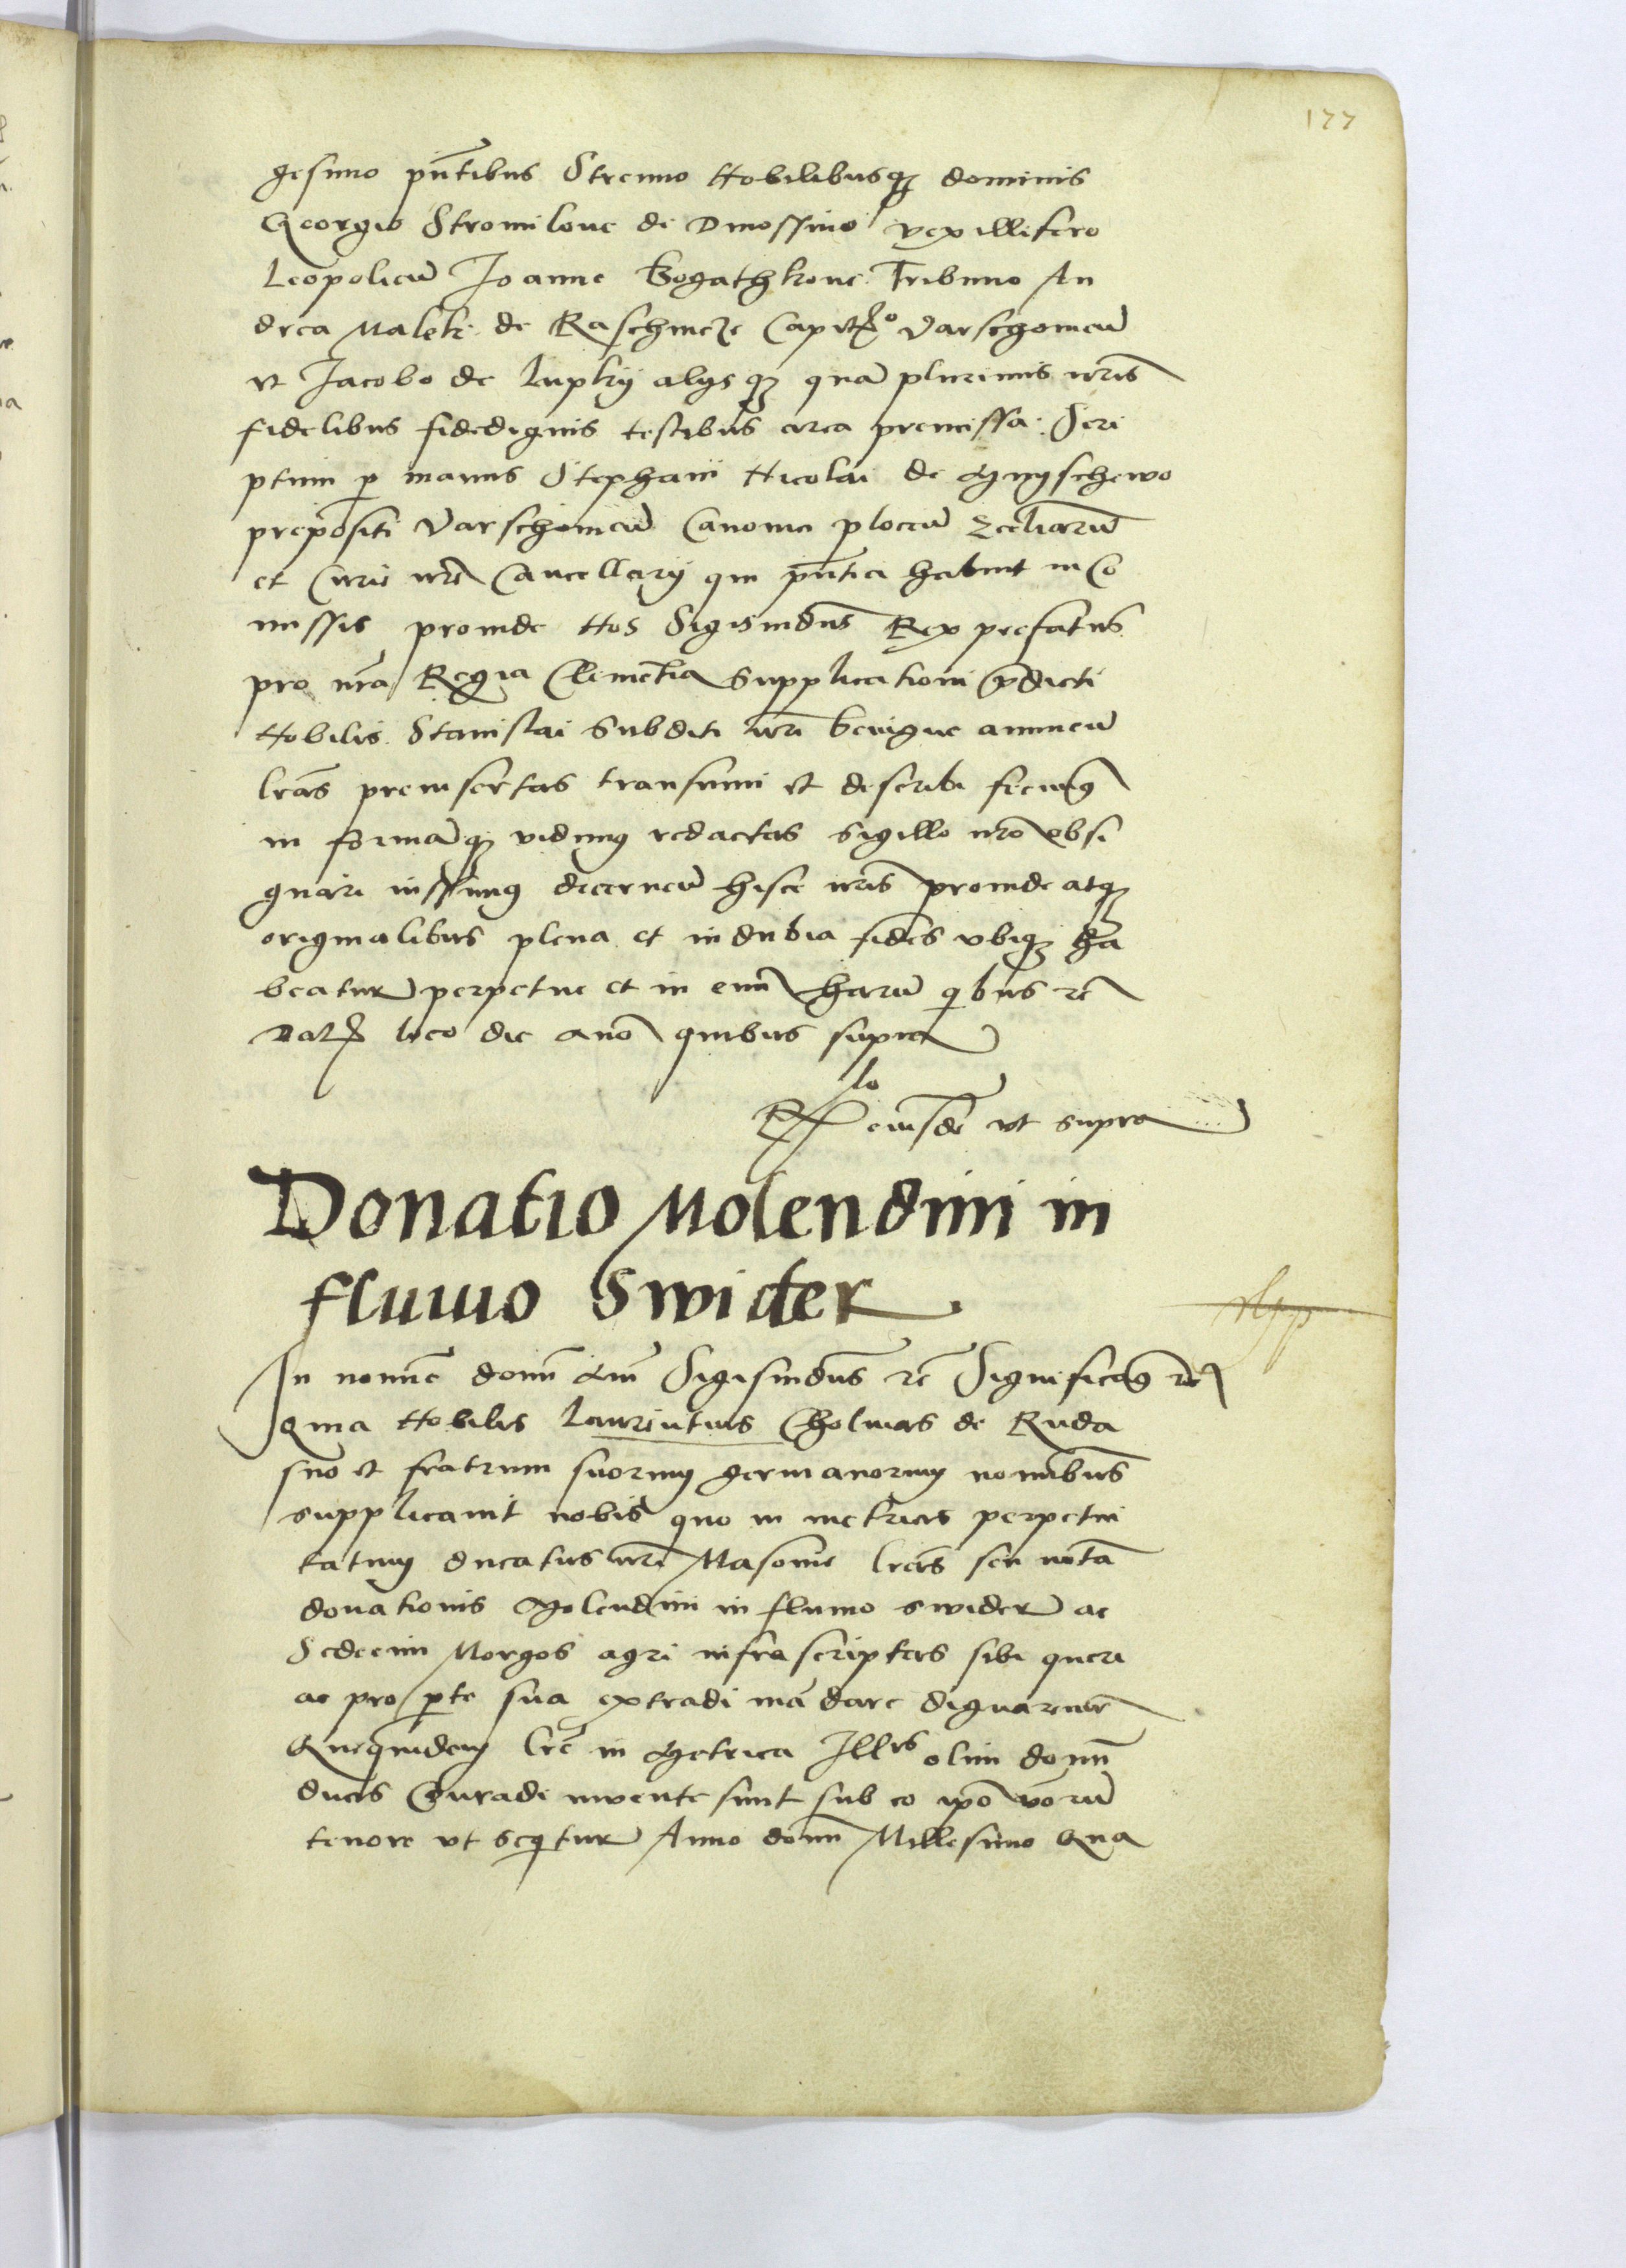 177
gesimo pntibus Strenuo Nobilibusq dominis
Georgio Stromilone de Dmossino vexillifero
Leopolien Joanne Bogathkone Tribuno An
drea Malek de Raschincze Capit° Varschouien
et Jacobo de Lupky alysq quam plurimis nris
fidelibus fidedignis testibus circa premissa. Scri
ptum p manus Stephani Nicolai de Mnyschewo
prepositi Varschouien Canonici plocen Eccliarum
et Curie nre Cancellarij qui pntia habuit in Co
missis proinde Nos Sigismdus Rex prefatus
pro nra Regia Clementia Supplicationi pdicti
Nobilis Stanislai Subditi nri benigne annuen
lras preinsertas transsumi et describi fecimus
in formamq vidimus redactas sigillo nro obsi
gnari iussimus decernen hisce nris proinde atq
originalibus plena et indubia fides vbiq ha
beatur perpetue et in euum harum qibus rc
Dat loco die anno quibus supra
Rlo eiusde vt supra
Donatio Molendini in
fluuio Swider
In nomine domi Am Sigismdus rc Significamus rc
Quia Nobilis Laurentius Cholmas de Ruda
suo et fratrum suorum germanorum nominibus
supplicauit nobis quo in metricis perpetui
tatum ducatus nri Masouie lras seu notam
donationis Molendini in fluuio Swider ac
Sedecim Morgos agri infrascriptas sibi queri
ac pro pte sua extradi mandare dignaremur
Quequidem lre in Metrica Illris olim domi
ducis Conradi inuente sunt sub eo ipo verum
tenore vt seqitur Anno domi Millesimo Qua